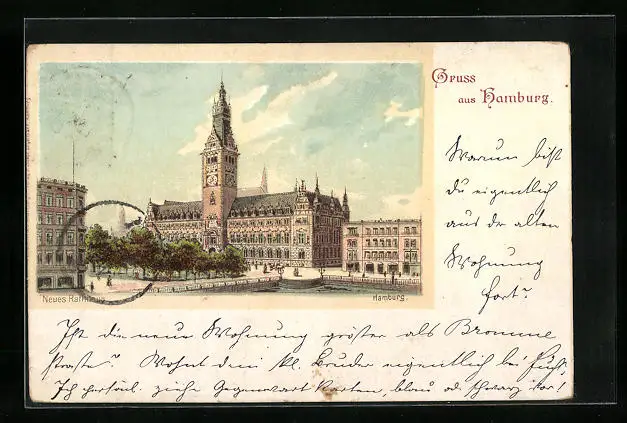 Gruss
aus Hamburg.
Warum bist
du eigentlich
aus der alten
Wohnung
fort?
Neues Rathhaus
Hamburg.
Ist die neue Wohnung größer als Bromme
straße? Wohnt dein kl. Bruder eigentlich bei
Ich persönl. ziehe Gegenwart Karten, blau od. schwarz vor!